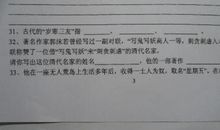 31、古代的“岁寒三友”指
32、著名作家郭沫若曾写过一副对联，“写鬼写妖高人一等，刺贪刺虐入
联称赞了一位借“写鬼写妖”来“刺贪刺虐”的清代名家。
请你写出这位清代名家的姓名　　　，他的一部著作
33、他在一座无人荒岛上生活多年后，收得一土人为奴，取名“星期五”
3